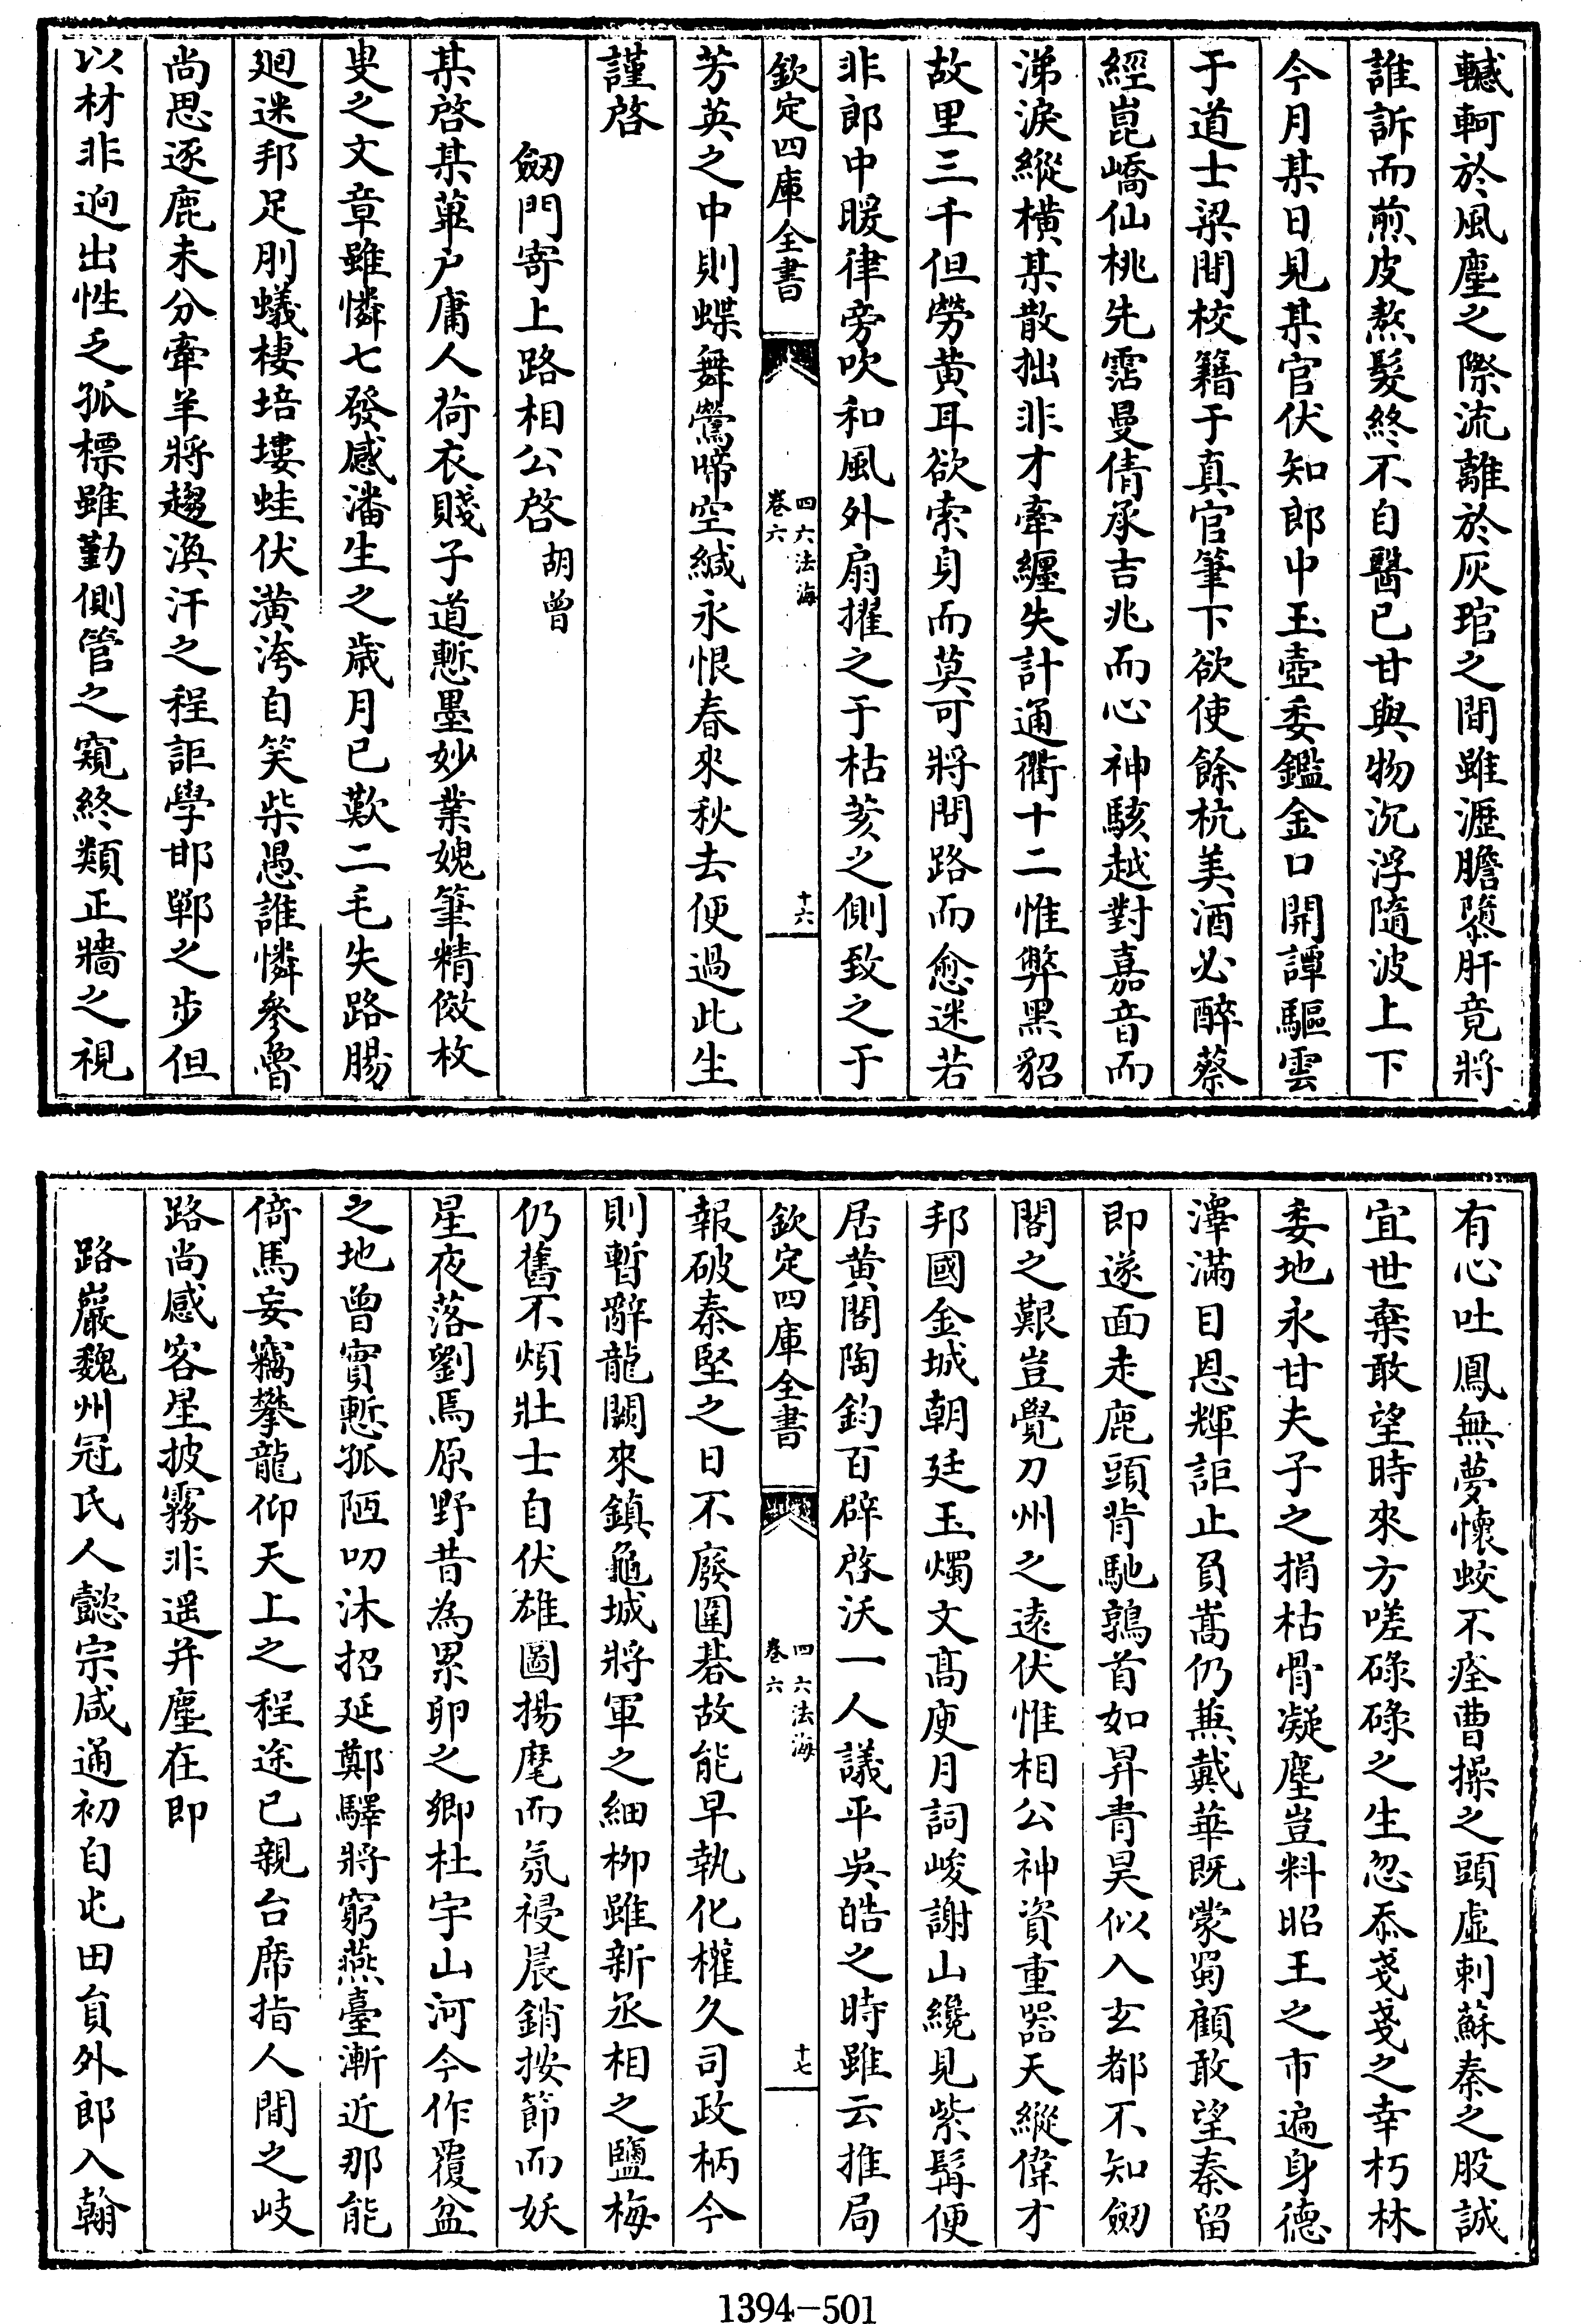 轗軻於風塵之際流離於灰琯之間雖瀝膽隳肝竟將
誰訴而煎皮熬髮終不自醫已甘與物沉浮隨波上下
今月某日見某官伏知郎中玉壺委鑑金口開譚驅雲
于道士梁間校籍于真官筆下欲使餘杭美酒必醉蔡
經崑嶠仙桃先霑曼倩承吉兆而心神駭越對嘉音而
涕淚縱橫某散拙非才牽纏失計通衢十二惟弊黑貂
故里三千但勞黄耳欲索身而莫可將問路而愈迷若
非郎中暖律旁吹和風外扇擢之于枯荄之側致之于
欽定四庫全書
四六法海
卷六
十六
芳英之中則蝶舞鶯啼空緘永恨春來秋去便過此生
謹啓
劒門寄上路相公啓胡曾
某啓某蓽户庸人荷衣賤子道慙墨妙業媿筆精倣枚
叟之文章雖憐七發感潘生之歲月已歎二毛失路腸
廻迷邦足刖蟻棲培塿蛙伏潢洿自笑柴愚誰憐參魯
尚思逐鹿未分牽羊將趨渙汗之程詎學邯鄲之步但
以材非逈出性乏孤標雖勤側管之窺終類正牆之視
有心吐鳳無夢懷蛟不痊曹操之頭虛刺蘇秦之股誠
宜世棄敢望時來方嗟碌碌之生忽忝戔戔之幸朽林
委地永甘夫子之捐枯骨凝塵豈料昭王之市遍身德
澤滿目恩輝詎止負嵩仍兼戴華既蒙蜀顧敢望秦留
即遂面走鹿頭背馳鶉首如昇青昊似入玄都不知劒
閣之艱豈覺刀州之遠伏惟相公神資重器天縱偉才
邦國金城朝廷玉燭文高庾月詞峻謝山纔見紫髯便
居黄閣陶鈞百辟啓沃一人議平吳皓之時雖云推局
欽定四庫全書
四六法海
卷六
十七
報破秦堅之日不廢圍碁故能早執化權久司政柄今
則暫辭龍闕來鎮龜城將軍之細柳雖新丞相之鹽梅
仍舊不煩壯士自伏雄圖揚麾而氛祲晨銷按節而妖
星夜落劉焉原野昔為累卵之鄉杜宇山河今作覆盆
之地曾實慙孤陋叨沐招延鄭驛將窮燕臺漸近那能
倚馬妄竊攀龍仰天上之程途已親台席指人間之岐
路尚感客星披霧非遥并塵在即
路巖魏州冠氏人懿宗咸通初自屯田員外郎入翰
1394-501